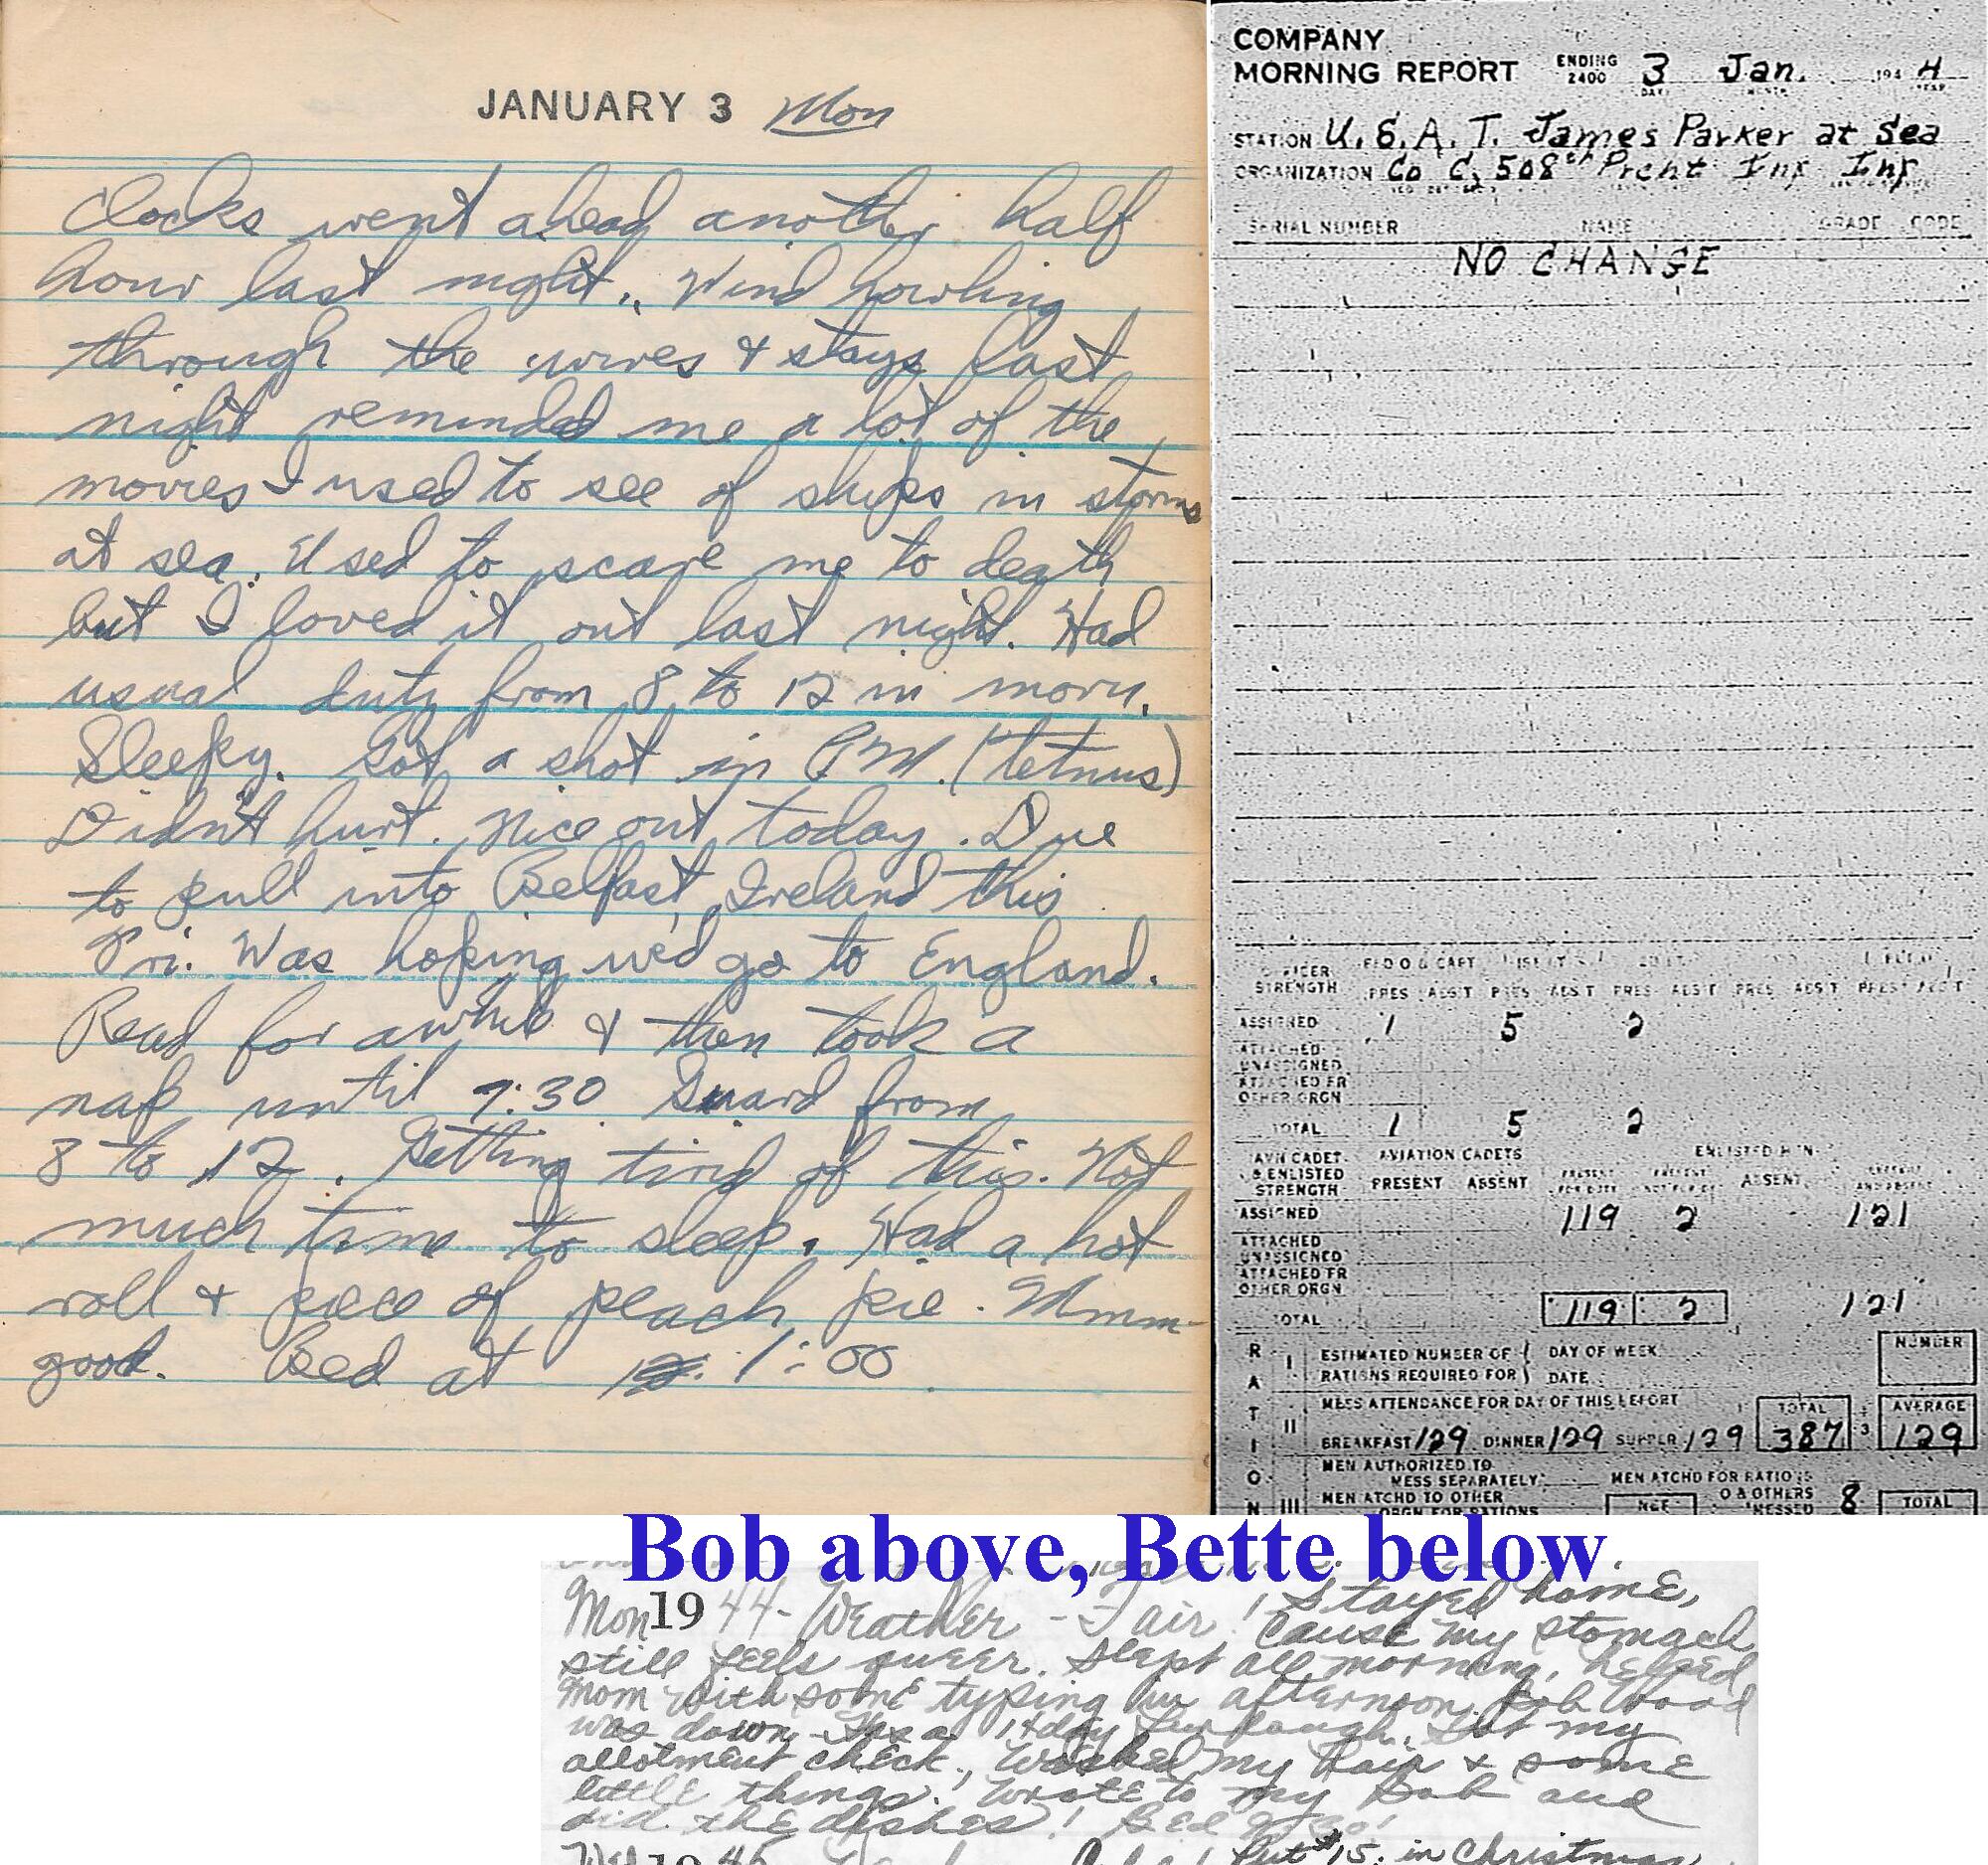 JANUARY 3 Mon
Clocks went ahead another half
hour last night. Wind howling
through the wires & stays last
night reminded me a lot of the
movies I used to see of ships in storms
at sea. Used to scare me to death
but I loved it out last night. Had
usual duty from 8 to 12 in morn.
Sleepy. Got a shot in P.M. (tetnus)
Didn't hurt. Nice out today. Due
to pull into Belfast, Ireland this
Fri. Was hoping we'd go to England.
Read for awhile & then took a
nap until 7:30 Guard from
8 to 12. Getting tired of this. Not
much time to sleep. Had a hot
roll & piece of peach pie. Mmm-
good. Bed at 1:00
COMPANY
MORNING REPORT ENDING 2400 3 Jan. 194 4
DAY MONTH YEAR
STATION U.S.A.T. James Parker at Sea
ORGANIZATION Co C, 508th Prcht Inf Inf
SERIAL NUMBER NAME GRADE CODE
NO CHANGE
OFFICER STRENGTH
PRES ABS'T PRES ABS'T PRES ABS'T PRES ABS'T PRES ABS'T
ASSIGNED 1 5 2
ATTACHED UNASSIGNED
ATTACHED FR OTHER ORGN
TOTAL 1 5 2
AVN CADET & ENLISTED STRENGTH AVIATION CADETS ENLISTED MEN
PRESENT ABSENT PRESENT FOR DUTY PRESENT NOT FOR DUTY ABSENT PRESENT AND ABSENT
ASSIGNED 119 2 121
ATTACHED UNASSIGNED
ATTACHED FR OTHER ORGN
TOTAL 119 2 121
RATION
I ESTIMATED NUMBER OF RATIONS REQUIRED FOR DAY OF WEEK DATE NUMBER
II MESS ATTENDANCE FOR DAY OF THIS REPORT TOTAL AVERAGE
BREAKFAST 129 DINNER 129 SUPPER 129 387 3 129
III MEN AUTHORIZED TO MESS SEPARATELY MEN ATCHD FOR RATIONS
MEN ATCHD TO OTHER ORGN FOR RATIONS NET O & OTHERS MESSED 8 TOTAL
Bob above, Bette below
Mon 1944 - Weather - Fair! Stayed home,
Cause my stomach
still feels queer. Slept all morning, helped
Mom with some typing in afternoon. Bob Wood
was down - Has a 14 day furlough. Got my
allotment check. Washed my hair & some
little things. Wrote to my Bob and
did the dishes! Bed 9:30!
Wed 1945 Put $15. in Christmas